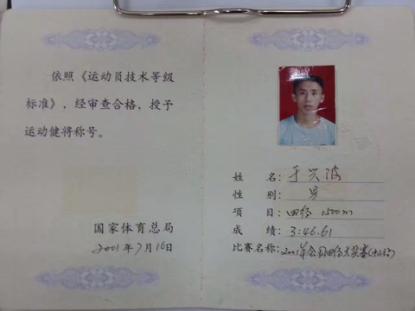 依照《运动员技术等级
标准》，经审查合格，授予
运动健将称号。
国家体育总局
2001年7月16日
姓 名：于兴波
性 别：男
项 目：田径 1500m
成 绩：3:46.61
比赛名称：2001年全国田径大奖赛